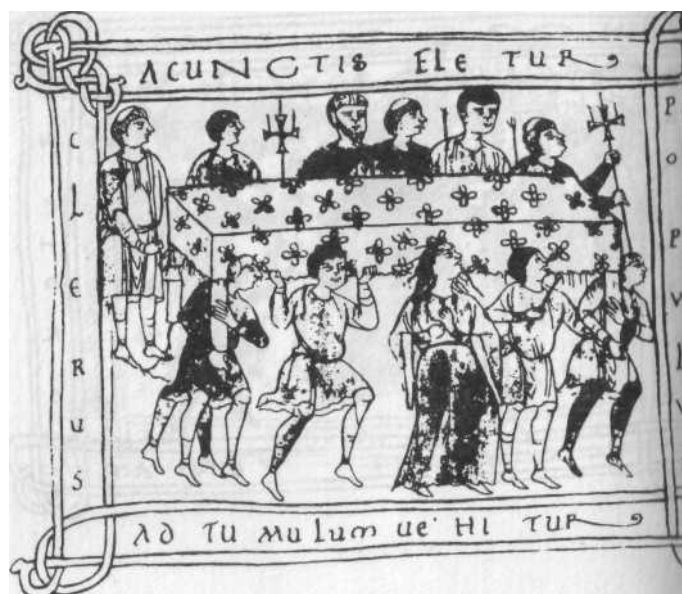 ACUNCTIS ELE TUR
CLERUS
POPVL
AD TU MULUM UE HI TUR